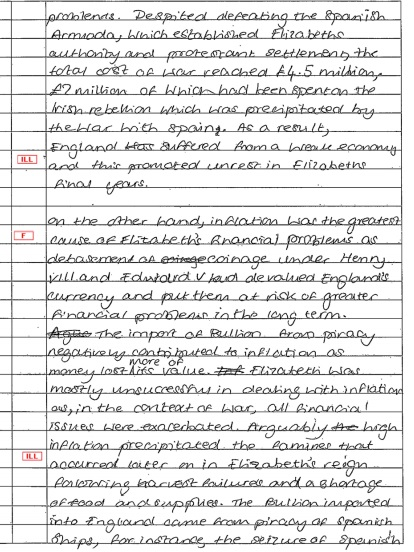 problems. Despited defeating the Spanish
Armada, which established Elizabeths
authority and protestant settlement, the
total cost of war reached £4.5 million,
£2 million of which had been spent on the
Irish rebellion which was precipitated by
the war with spaing. As a result,
England was suffered from a weak economy
ILL and this promoted unrest in Elizabeths
final years.
on the other hand, inflation was the greatest
F cause of Elizabeth's financial problems as
debasement of coinage under Henry
VIII and Edward V had devalued England's
currency and put them at risk of greater
financial problems in the long term.
The import of Bullion from piracy
negatively contributed to inflation as
money lost more of its value. Elizabeth was
mostly unsuccessful in dealing with inflation
as, in the context of war, all financial
issues were exacerbated. Arguably the high
inflation precipitated the famines that
ILL occurred later on in Elizabeth's reign
following harvest failures and a shortage
of food and supplies. The Bullion imported
into England came from piracy of Spanish
ships, for instance, the seizure of Spanish